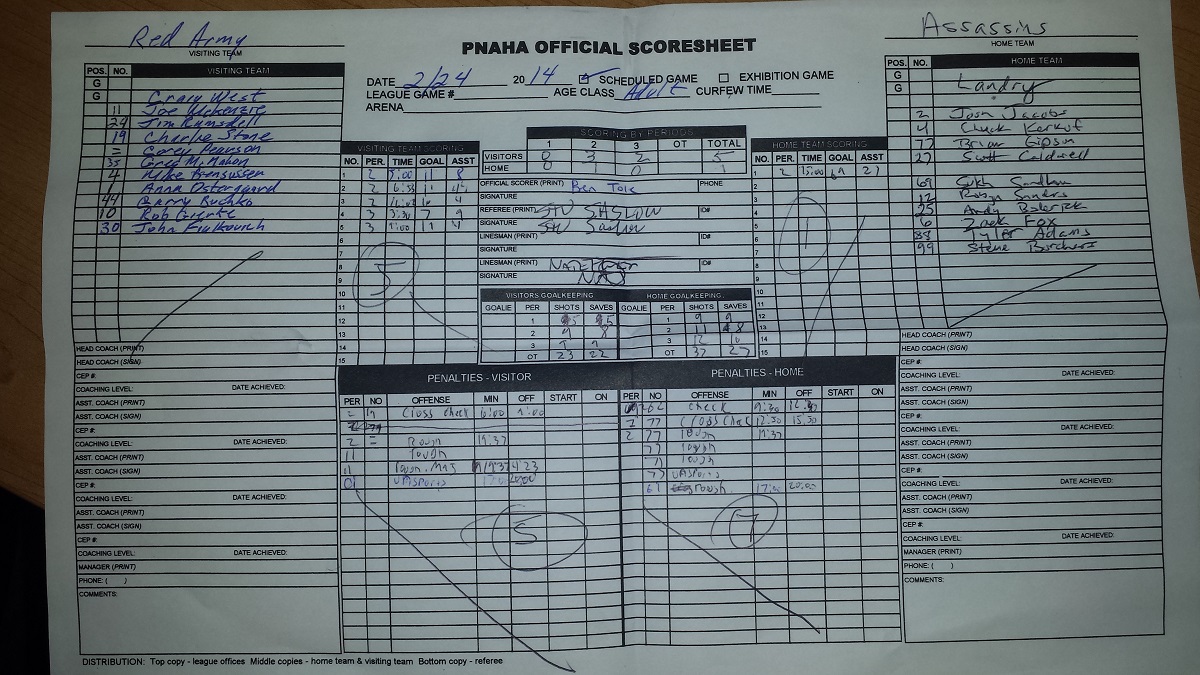 Red Army
VISITING TEAM
PNAHA OFFICIAL SCORESHEET
Assassins
HOME TEAM
DATE 2/24 2014 SCHEDULED GAME EXHIBITION GAME
LEAGUE GAME # AGE CLASS Adult CURFEW TIME
ARENA
POS. NO. VISITING TEAM
G
G Craig West
11 Joe McKenzie
24 Jim Ramsdell
19 Charlie Stone
= Corey Pearson
35 Greg McMahon
4 Mike
1 Anna Ostergaard
44 Barry Buchko
10 Rob
30 John Fialkovich
HEAD COACH (PRINT)
HEAD COACH (SIGN)
CEP #:
COACHING LEVEL: DATE ACHIEVED:
ASST. COACH (PRINT)
ASST. COACH (SIGN)
CEP #:
COACHING LEVEL: DATE ACHIEVED:
ASST. COACH (PRINT)
ASST. COACH (SIGN)
CEP #:
COACHING LEVEL: DATE ACHIEVED:
ASST. COACH (PRINT)
ASST. COACH (SIGN)
CEP #:
COACHING LEVEL: DATE ACHIEVED:
MANAGER (PRINT)
PHONE: ( )
COMMENTS:
VISITING TEAM SCORING
NO. PER. TIME GOAL ASST
1 2 5:00 11 8
2 2 6:53 11
3 2 4
4 3 3:30 7 9
5 3 1:00 11 4
6
7
8
9
10
11
12
13
14
15
5
SCORING BY PERIODS
1 2 3 OT TOTAL
VISITORS 0 3 2 5
HOME 0 1 0 1
OFFICIAL SCORER (PRINT) Ben Tole PHONE
SIGNATURE
REFEREE (PRINT) ID#
SIGNATURE
LINESMAN (PRINT) ID#
SIGNATURE
LINESMAN (PRINT) ID#
SIGNATURE
VISITORS GOALKEEPING
GOALIE PER SHOTS SAVES
1
2 9 8
3
OT 23 22
HOME GOALKEEPING
GOALIE PER SHOTS SAVES
1 9 9
2 11 8
3 12 10
OT 27
HOME TEAM SCORING
NO. PER. TIME GOAL ASST
1 2 15:00 69 27
2
3
4
5
6
7
8
9
10
11
12
13
14
15
1
POS. NO. HOME TEAM
G
G Landry
G
2 Josh Jacobs
4 Chuck Kerkof
77 Brian Gipson
27 Scott Caldwell
69 Sukh Sandhu
12
25 Andy
6 Zack Fox
88 Tyler Adams
99 Steve Borchers
HEAD COACH (PRINT)
HEAD COACH (SIGN)
CEP #:
COACHING LEVEL: DATE ACHIEVED:
ASST. COACH (PRINT)
ASST. COACH (SIGN)
CEP #:
COACHING LEVEL: DATE ACHIEVED:
ASST. COACH (PRINT)
ASST. COACH (SIGN)
CEP #:
COACHING LEVEL: DATE ACHIEVED:
ASST. COACH (PRINT)
ASST. COACH (SIGN)
CEP #:
COACHING LEVEL: DATE ACHIEVED:
MANAGER (PRINT)
PHONE: ( )
COMMENTS:
PENALTIES - VISITOR
PER NO OFFENSE MIN OFF START ON
= 19 Cross check 6:00 9:00
2 = Rough 19:37
11 rough
11 4:23
unsports 20:00
5
PENALTIES - HOME
PER NO OFFENSE MIN OFF START ON
check 9:30 12:30
2 77 Cross Check 12:30 15:30
2 77 rough 19:37
77 rough
77 rough
77 unsports
61 rough 17:00 20:00
7
DISTRIBUTION: Top copy - league offices Middle copies - home team & visiting team Bottom copy - referee